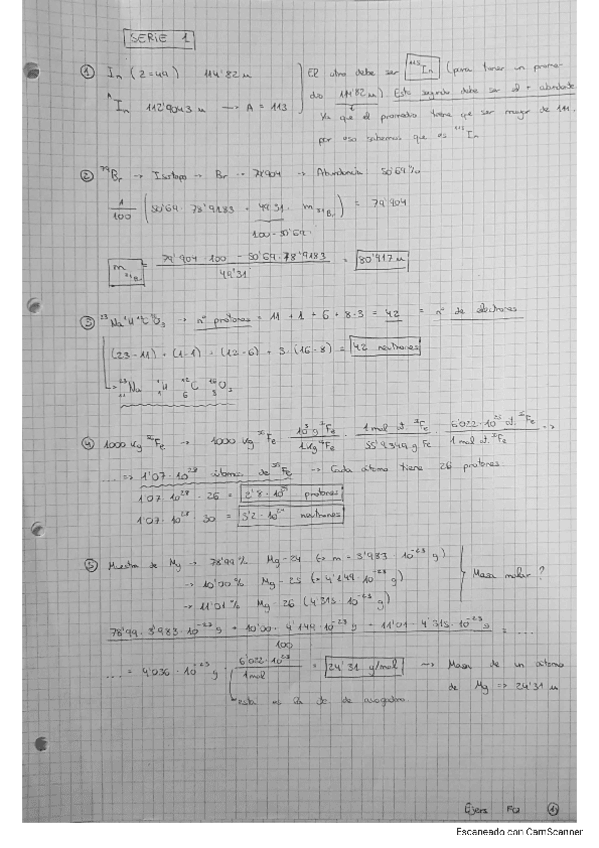 SERIE 1
① In (Z=49) 114'82 u
El otro debe ser ¹¹⁵In (para tener un prome-
ᴬIn 112'9043 u → A = 113
dio 114'82 u). Este segundo debe ser el + abundante
Ya que el promedio tiene que ser mayor de 114.
por eso sabemos que es ¹¹⁵In
② ⁷⁹Br → Isótopo → Br → 79'904 → Abundancia 50'69%
1/100 (50'69 · 78'9183 + 49'31 · m ⁸¹Br) = 79'904
100 - 50'69
m ⁸¹Br = (79'904 · 100 - 50'69 · 78'9183) / 49'31 = 80'917 u
③ ²³Na ¹H ¹²C ¹⁶O₃ → nº protones = 11 + 1 + 6 + 8·3 = 42 = nº de electrones
(23-11) + (1-1) + (12-6) + 3·(16-8) = 42 neutrones
²³₁₁Na ¹₁H ¹²₆C ¹⁶₈O₃
④ 1000 kg ⁵⁶Fe → 1000 kg ⁵⁶Fe · 10³ g ⁵⁶Fe / 1 kg ⁵⁶Fe · 1 mol at. ⁵⁶Fe / 55'9349 g Fe · 6'022·10²³ at. ⁵⁶Fe / 1 mol at. ⁵⁶Fe →
... → 1'07 · 10²⁸ átomos de ⁵⁶Fe → Cada átomo tiene 26 protones
1'07 · 10²⁸ · 26 = 2'8 · 10²⁹ protones
1'07 · 10²⁸ · 30 = 3'2 · 10²⁹ neutrones
⑤ Muestra de Mg → 78'99% Mg-24 (→ m = 3'983 · 10⁻²³ g)
→ 10'00% Mg-25 (→ 4'149 · 10⁻²³ g) Masa molar?
→ 11'01% Mg-26 (4'315 · 10⁻²³ g)
(78'99 · 3'983 · 10⁻²³ g + 10'00 · 4'149 · 10⁻²³ g + 11'01 · 4'315 · 10⁻²³ g) / 100 = ...
... = 4'036 · 10⁻²³ g · 6'022 · 10²³ / 1 mol = 24'31 g/mol → Masa de un átomo
esta es la cte de avogadro. de Mg => 24'31 u
Ejers FQ ①
Escaneado con CamScanner